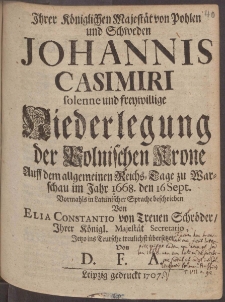 Ihrer Königlichen Majestät von Pohlen
und Schweden
JOHANNIS
CASIMIRI
solenne und freywillige
Niederlegung
der Polnischen Krone
Auff dem allgemeinen Reichs-Tage zu War-
schau im Jahr 1668. den 16 Sept.
Vormahls in Lateinischer Sprache beschrieben
Von
ELIA CONSTANTIO von Treuen Schröder/
Ihrer Königl. Majestät Secretario,
Jetzo ins Teutsche treulichst übersetzet
Von
D. F.
Leipzig gedruckt 1707.